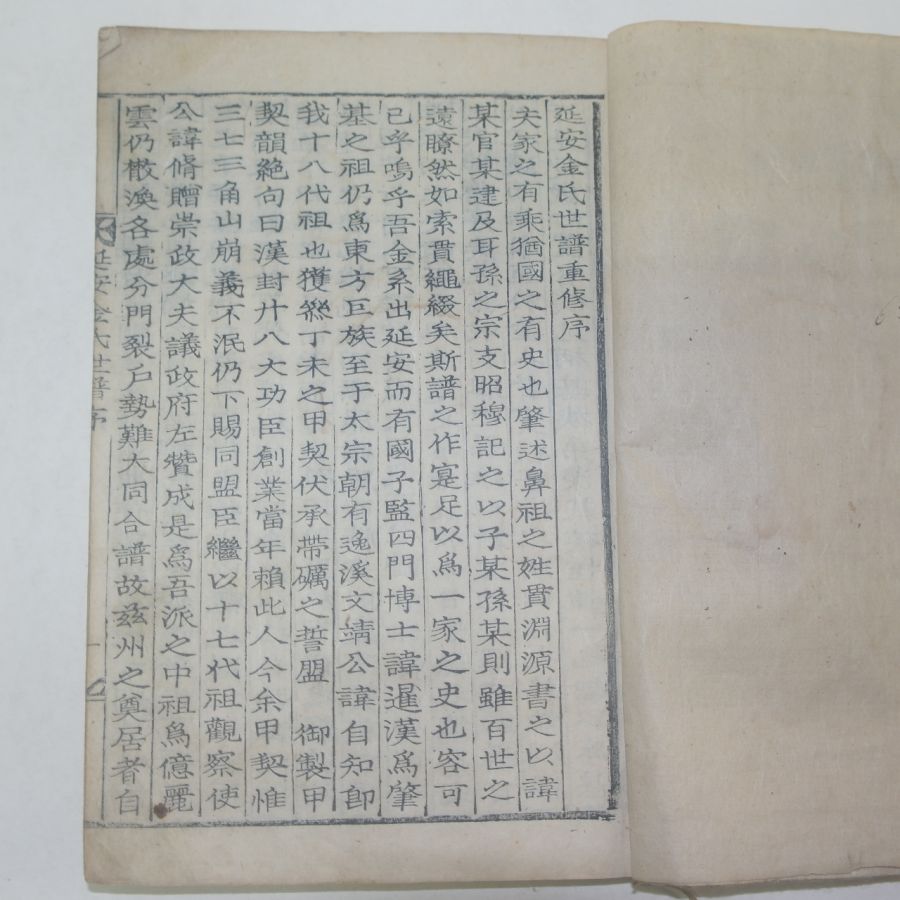 延安金氏世譜重修序
夫家之有乘猶國之有史也肇述鼻祖之姓貫淵源書之以諱
某官某逮及耳孫之宗支昭穆記之以子某孫某則雖百世之
遠瞭然如索貫繩綴矣斯譜之作寔足以爲一家之史也容可
已乎嗚乎吾金系出延安而有國子監四門博士諱暹漢爲肇
基之祖仍爲東方巨族至于太宗朝有逸溪文靖公諱自知卽
我十八代祖也獲叅丁未之甲契伏承帶礪之誓盟 御製甲
契韻絶句曰漢封廿八大功臣創業當年賴此人今余甲契惟
三七三角山崩義不泯仍下賜同盟臣繼以十七代祖觀察使
公諱脩贈崇政大夫議政府左贊成是爲吾派之中祖爲億麗
雲仍散渙各處分門裂戶勢難大同合譜故玆州之奠居者自
延安金氏世譜序
一